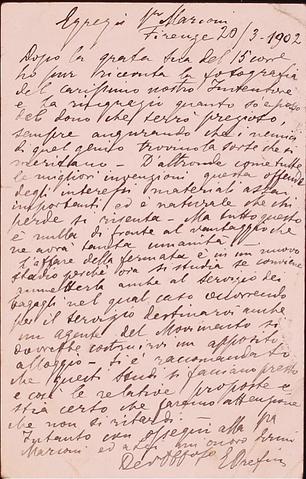 Egregio Sr Marconi
Firenze 20/3-1902
Dopo la grata sua del 15 corre
ho pur ricevuta la fotografia
del carissimo nostro Inventore
e La ringrazio quanto so e posso
del dono che terrò prezioso,
sempre augurando che i nemici
di quel genio trovino la sorte che si
meritano - D'altronde come tutte
le migliori invenzioni questa offende
degli interessi materiali assai
importanti ed è naturale che chi
perde si risenta - Ma tutto questo
è nulla di fronte al vantaggio che
ne avrà tanta umanità
L'affare della fermata è in un nuovo
stadio perchè ora si studia se conviene
ammetterla anche al servizio dei
bagagli nel qual caso occorrendo
per il servizio destinarvi anche
un agente del Movimento si
dovrebbe costruirvi un apposito
alloggio - Si è raccomandato
che questi studi si facciano presto
e così le relative proposte e
stia certo che faremo attenzione
che non si ritardi
Intanto con ossequi alla
Marconi ed a
Devot